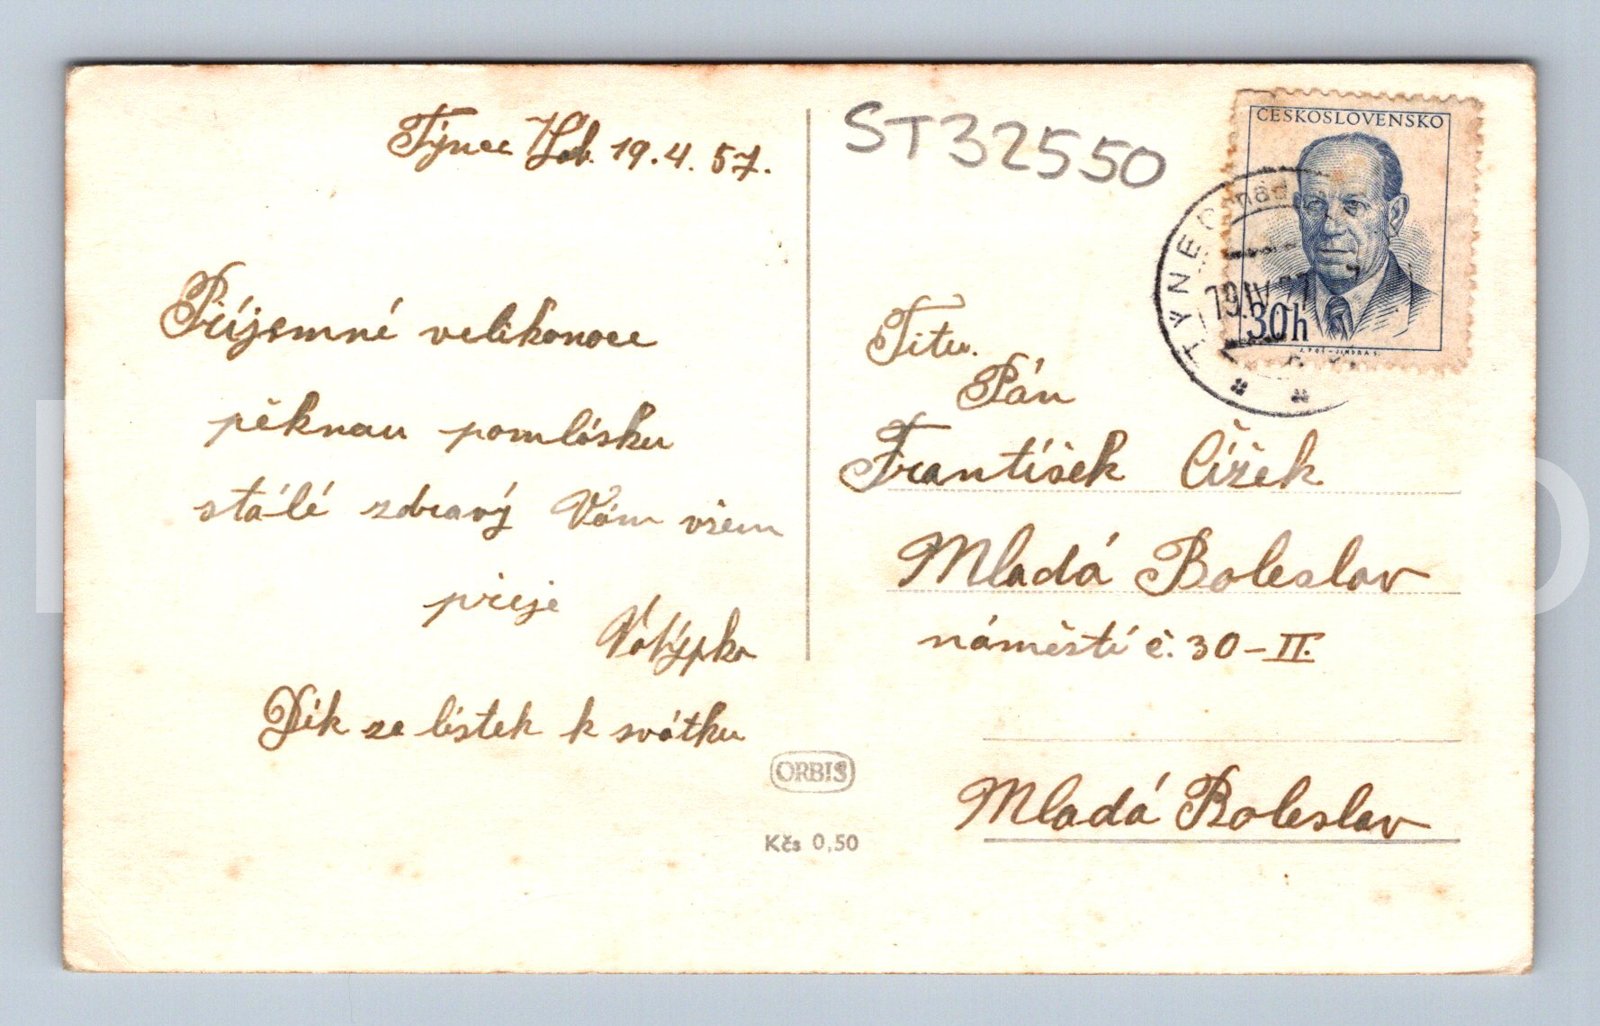 Týnec /Lab. 19.4.57.
Příjemné velikonoce
pěknau pomlásku
stálé zdravý Vám všem
přeje
Votýpka
Dík za lístek k svátku
ORBIS
Kčs 0,50
ST32550
ČESKOSLOVENSKO
30h
TÝNEC nad
19.IV.57
Titu.
Pán
František Čížek
Mladá Boleslav
náměstí č. 30-II.
Mladá Boleslav